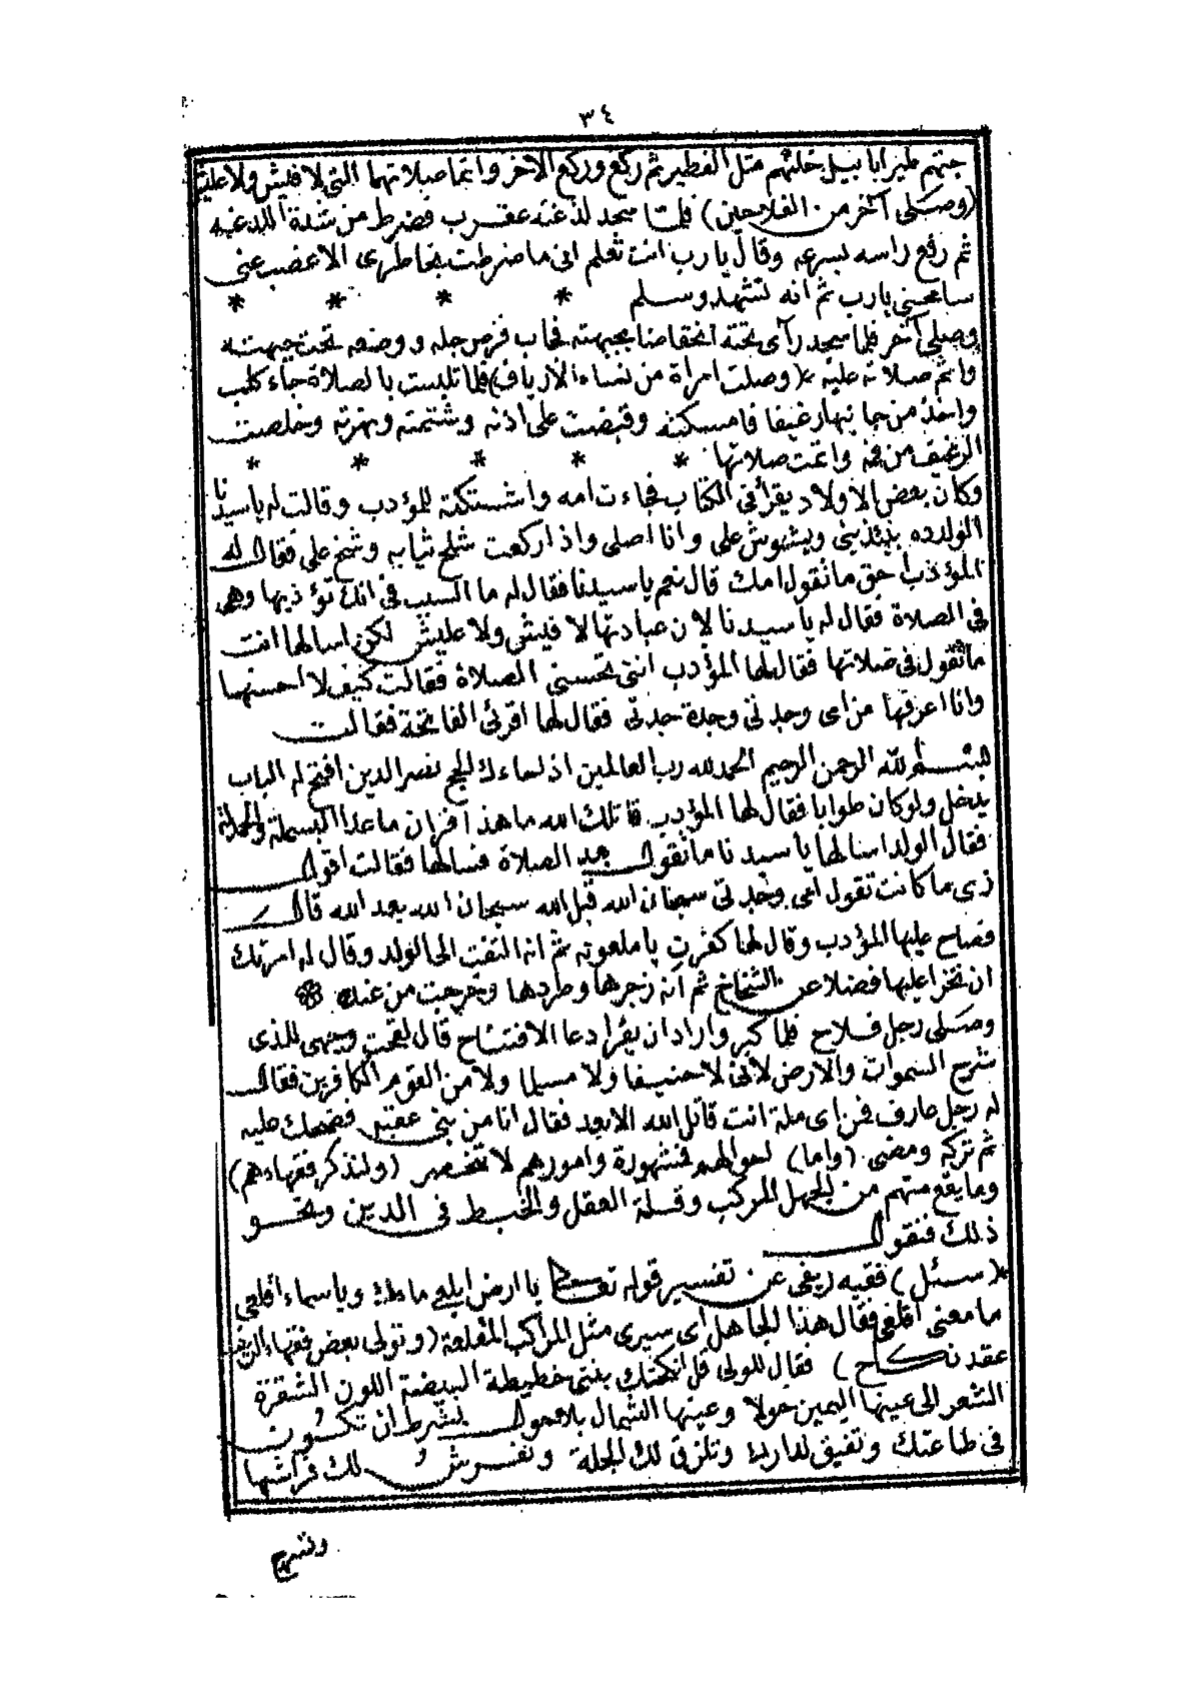 ٣٤
جتهم طيرابابيل خلتهم مثل الفطير ثم ركع وركع الاخر واتما صلاتهما التى لا فيش ولا عليش
(وصلى آخر من الفلاحين) فلمتا سجد لذغته عقرب فضرط من شدة اللدغه
ثم رفع راسه بسرعه وقال يارب انت تعلم انى ما ضرطت بخاطرى الاغصب عنى
سامحنى يارب ثم انه تشهد وسلم * * * *
وصلى آخر فلما سجد رآى تحتة انخفاضا بجبهته فجاب قرص جله ووضعه تحت جبهته
واتم صلاته عليه * (وصلت امراة من نساء الأرياف) فلما تلبست بالصلاة جاء كلب
واخذ من جانبها رغيفا فامسكته وقبضت على اذنه وشتمته ونهرته وخلصت
الرغيف من فمه واتمت صلاتها * * * * *
وكان بعض الاولاد يقرأ فى الكتاب فجاءت امه واشتكته للمؤدب وقالت له ياسيدنا
الولد ده بيئذينى ويشوش على وانا اصلى واذا ركعت شلح ثيابه وشخ على فقال له
المؤدب احق ما تقول امك قال نعم ياسيدنا فقال له ما السبب فى انك تؤذيها وهى
فى الصلاة فقال له ياسيدنا لان عبادتها لا فيش ولا عليش لكن اسالها انت
ما تقول فى صلاتها فقال لها المؤدب انتى تحسنى الصلاة فقالت كيف لا احسنها
وانا اعرفها من امى وجدتى وجدة جدتى فقال لها اقرئى الفاتحة فقالت
بسم لله الرحمن الرحيم الحمد لله رب العالمين اذ لساءك لجج نصر الدين افتح له الباب
يدخل ولو كان طوابا فقال لها المؤدب قاتلك الله ما هذا قران ما عدا البسملة والحمدلة
فقال الولد اسالها ياسيدنا ما تقول بعد الصلاة فسالها فقالت اقول
زى ما كانت تقول امى وجدتى سبحان الله قبل الله سبحان الله بعد الله قال
فصاح عليها المؤدب وقال لها كفرت يا ملعونه ثم انه التفت الى الولد وقال له امرتك
ان تخرا عليها فضلا عن الشخاخ ثم انه زجرها وطردها وخرجت من عنده
وصلى رجل فلاح فلما كبر واراد ان يقرا دعا الافتتاح قال لقحت وجهى للذى
شرح السموات والارض لانى لا حنيفا ولا مسيلما ولا من القوم الكافرين فقال
له رجل عارف فمن اى ملة انت قاتل الله الابعد فقال انا من بنى عقبه فضحك عليه
ثم تركه ومضى (واما) احوالهم فمشهورة وامورهم لا تنحصر (ولنذكر فقهاءهم)
وما يقع منهم من الجهل المركب وقسلة العقل والخبط فى الدين ونحو
ذلك فنقول
(سئل) فقيه ريفى عن تفسير قوله تعالى يا ارض ابلعى ماءك وياسماء أقلعى
ما معنى اقلعى فقال هذا الجاهل اى سيرى مثل المراكب المقلعة (وتولى بعض فقهاء الريف
عقد نكاح) فقال للولى قل انكحتك بنتى خطيطة البيضة اللون الشقرة
الشعر الى عينها اليمين حولا وعينها الشمال بلا بشرط ان تكون
فى طاعتك وتفيق لدارك وتلزق لك الجلة وتفرش لك فراشها
وتسرح